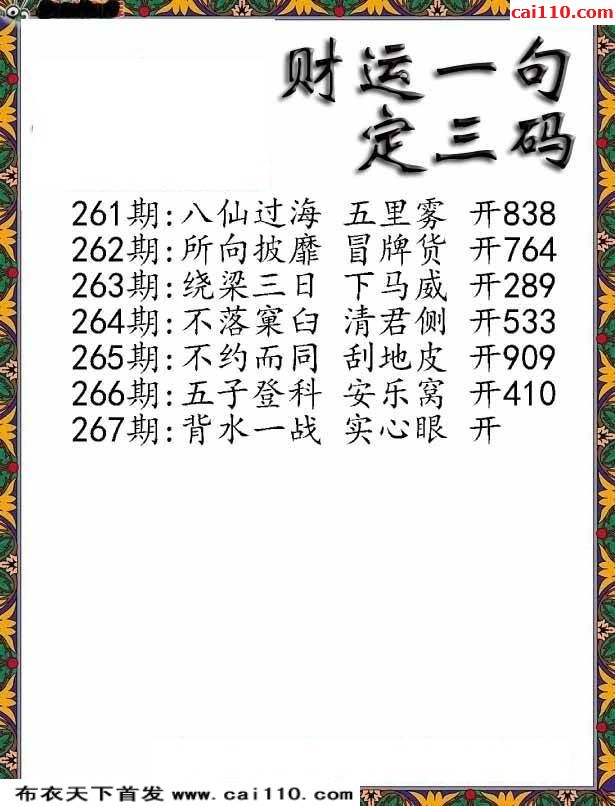 cai110.com
财运一句
定三码
261期:八仙过海 五里雾 开838
262期:所向披靡 冒牌货 开764
263期:绕梁三日 下马威 开289
264期:不落窠臼 清君侧 开533
265期:不约而同 刮地皮 开909
266期:五子登科 安乐窝 开410
267期:背水一战 实心眼 开
布衣天下首发 www.cai110.com